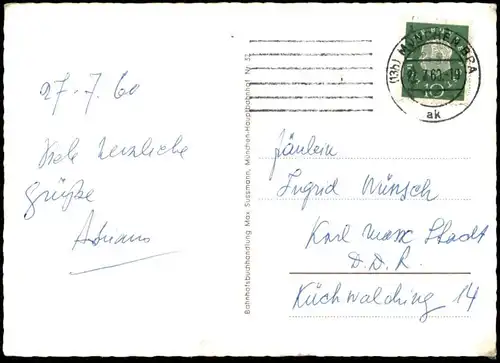 27-7.60
Viele herzliche
Grüße
Adriano
Bahnhofsbuchhandlung Max Sussmann, München-Hauptbahnhof Nr. 53
(13b) MÜNCHEN BPA
.7.60-19
ak
10
Fräulein
Ingrid Münsch
Karl Marx Stadt
D.D.R.
Küchwaldring 14